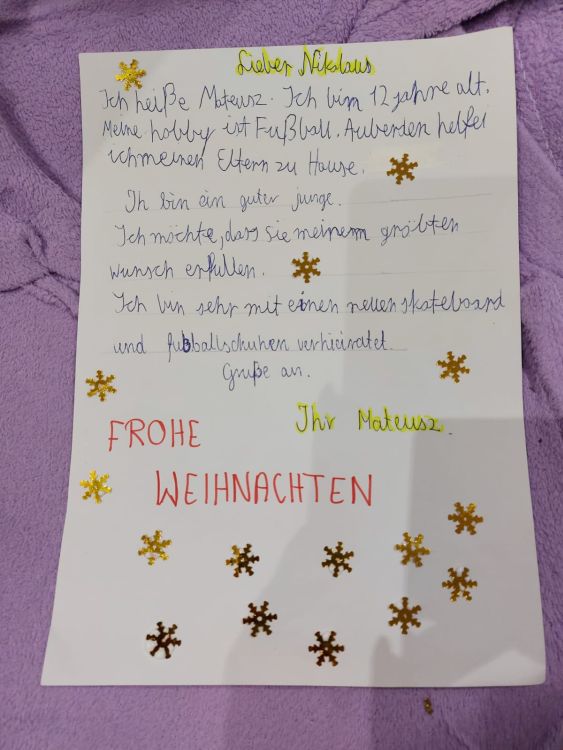 Lieber Nikolaus
Ich heiße Mateusz. Ich bim 12 jahre alt.
Meine hobby ist Fußball. Auberden helfei
ich meinen Eltern zu House.
Ih bin ein guter junge.
Ich möchte, dass sie meinem größten
wunsch erfullen.
Ich bin sehr mit einen neuen skateboard
und fußballschuhen verheiratet.
Gruße an.
Ihr Mateusz.
FROHE
WEIHNACHTEN